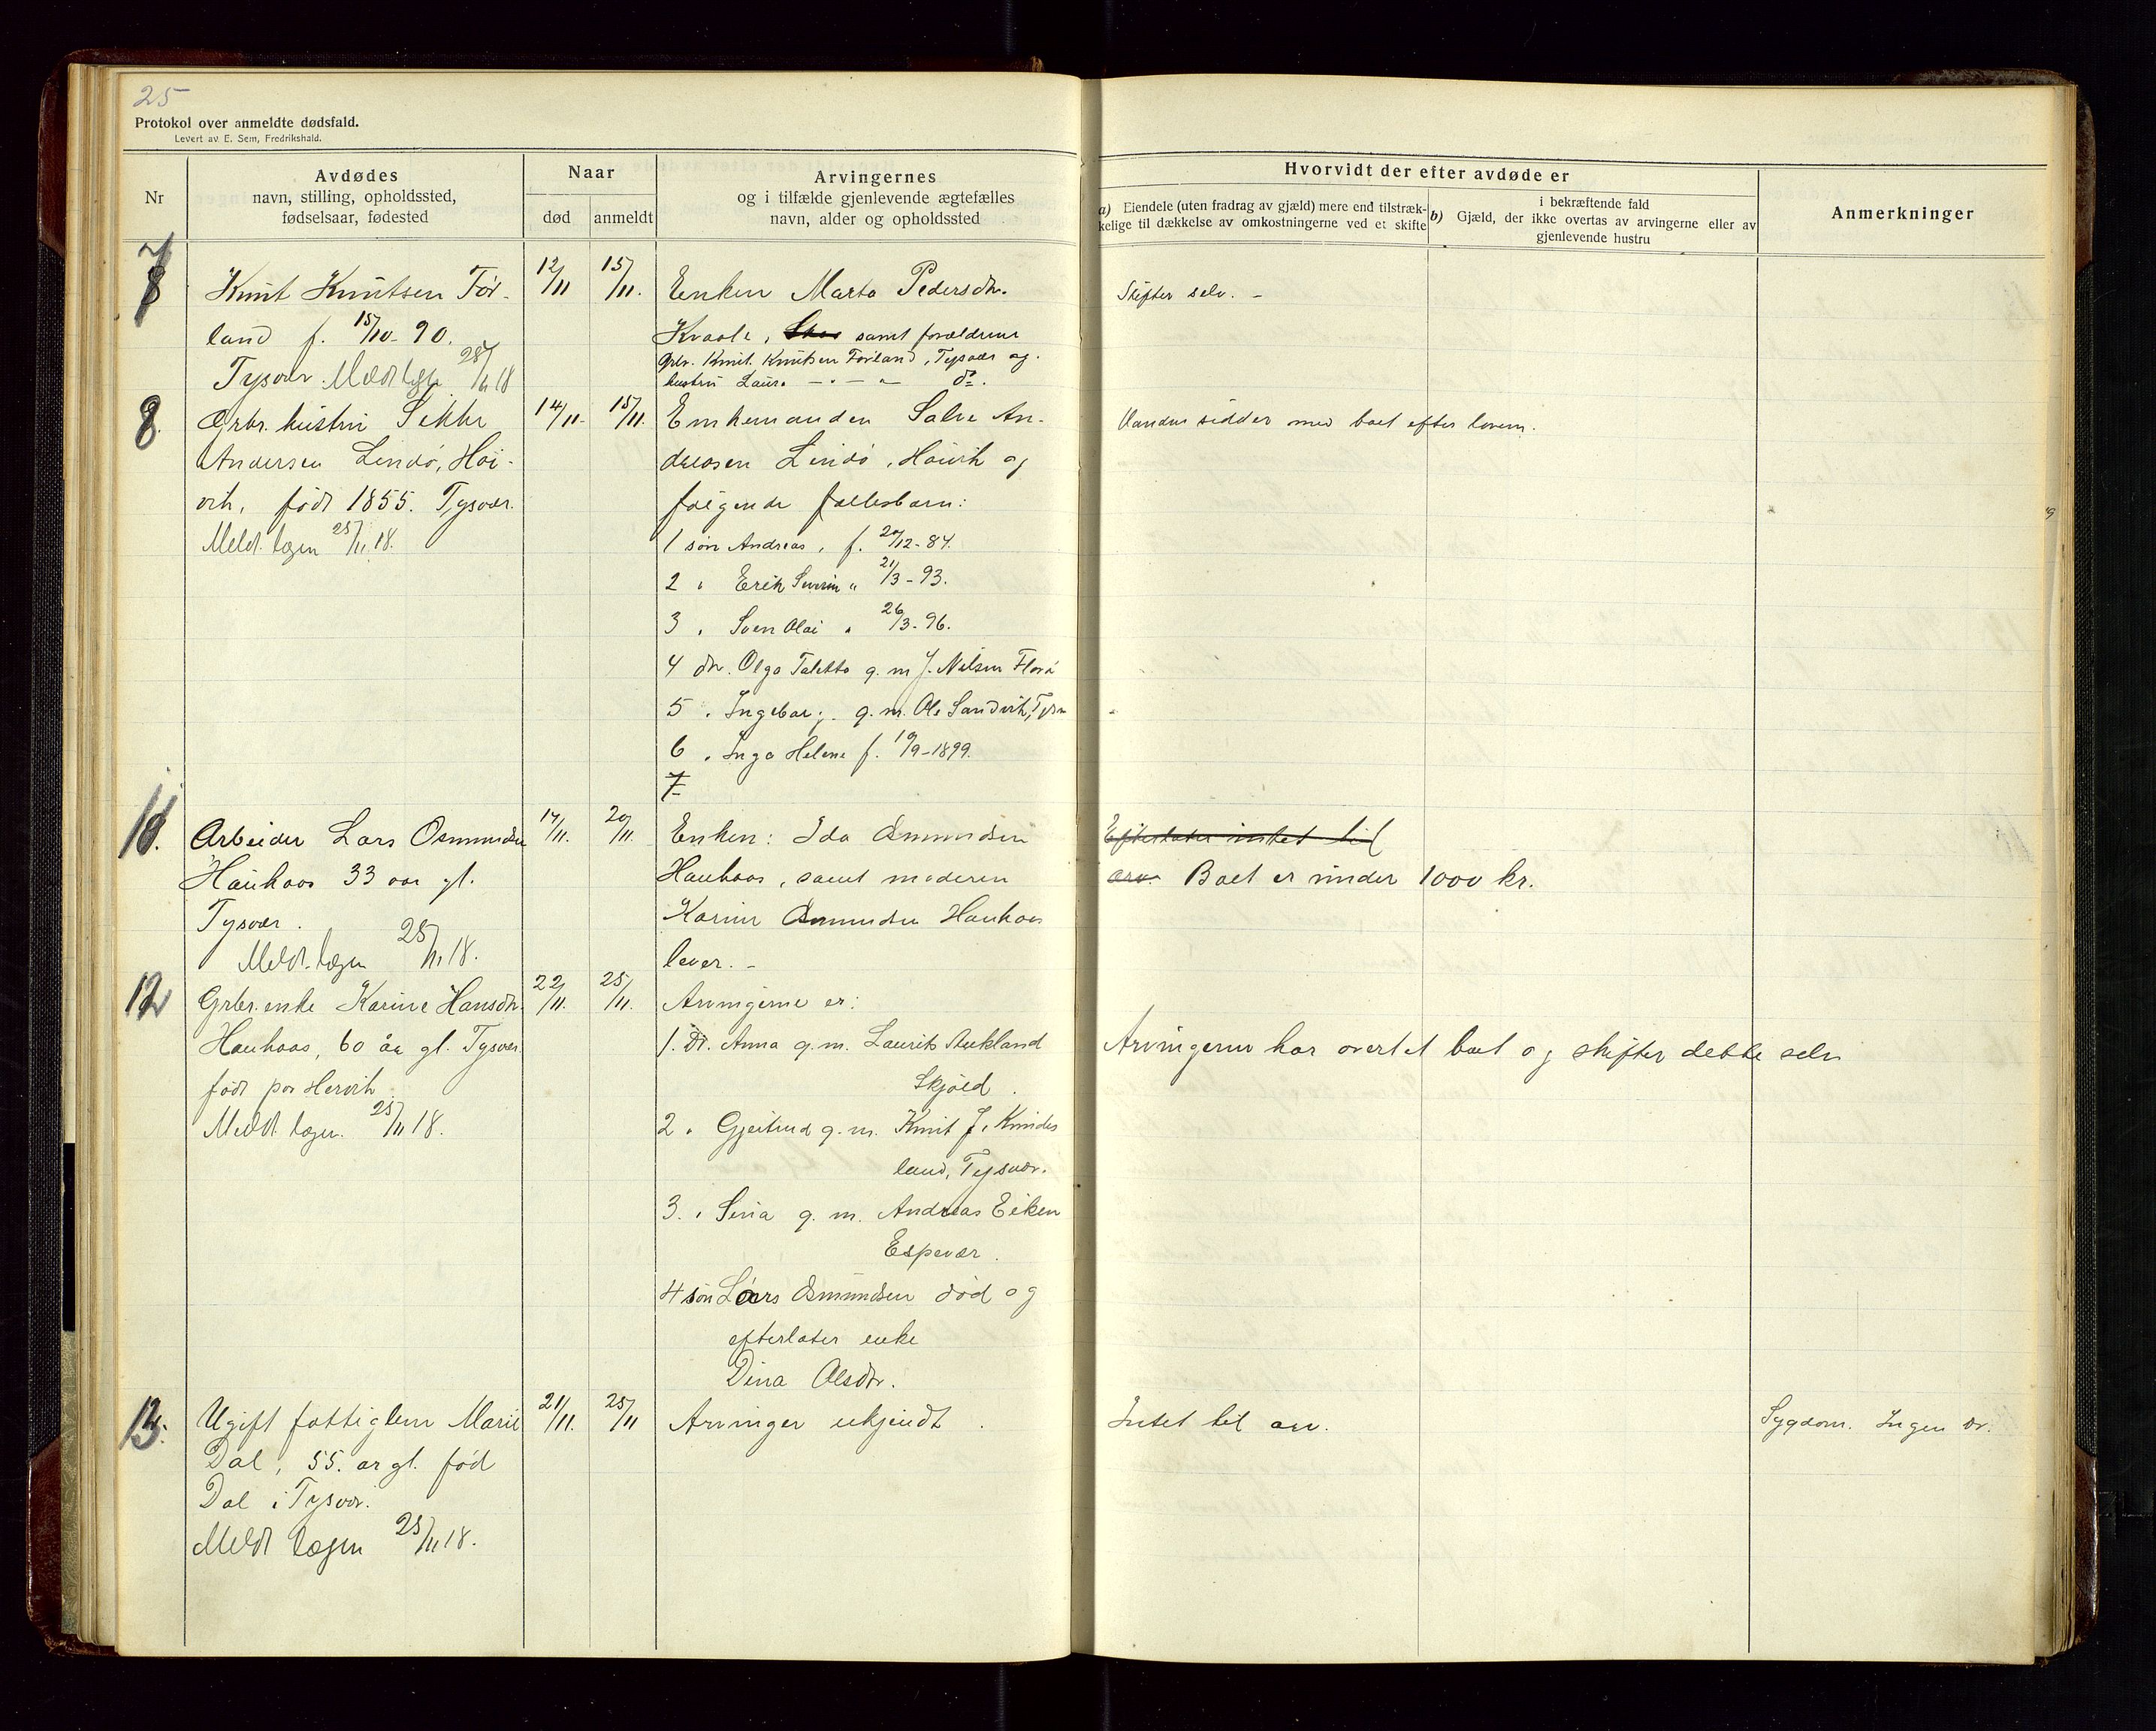 25
Protokol over anmeldte dødsfald.
Levert av E. Sem, Fredrikshald.
Nr
Avdødes
navn, stilling, opholdssted,
fødselsaar, fødested
Naar
død
anmeldt
Arvingernes
og i tilfælde gjenlevende ægtefælles
navn, alder og opholdssted
Hvorvidt der efter avdøde er
a) Eiendele (uten fradrag av gjæld) mere end tilstræk-
kelige til dækkelse av omkostningerne ved et skifte
i bekræftende fald
b) Gjæld, der ikke overtas av arvingerne eller av
gjenlevende hustru
Anmerkninger
7
Knut Knutsen Før-
land f. 15/10-90.
Tysvær. Meldt lægen 25/11 18
12/11
15/11.
Enken Marta Pedersdtr.
Kvaale, samt forældrene
Grbr. Knut Knutsen Førland, Tysvær og
hustru Laura — " — " — do.
Skifter selv. -
8
Grbr. hustru Sikke
Andersen Lindø, Høi-
vik, født 1855. Tysvær.
Meldt lægen 25/11 18.
14/11-
15/11.
Enkemanden Salve An-
dreasen Lindø, Høivik og
følgende fællesbarn:
1 søn Andreas, f. 20/12-84.
2 " Erik Severin " 21/3-93.
3 " Sven Olai " 26/3-96.
4 dtr. Olga Taletta g. m J. Nilsen
5 " Ingebor; g. m. Ole Sandvik, Tysv
6 " Inga Helene f. 19/9-1899.
7
Manden sidder med boet efter loven.
10.
Arbeider Lars Osmundsen
Hauhaas 33 aar gl.
Tysvær.
Meldt lægen 25/11 18.
17/11.
20/11.
Enken: Ida Osmundsen
Hauhaas, samt moderen
Karine Osmundsen Hauhaas
lever. -
Efterlater intet til
arv. Boet er under 1000 kr.
12
Grbr. enke Karine Hansdtr.
Hauhaas, 60 år gl. Tysvær
født paa Hervik
Meldt lægen. 25/11 18.
22/11.
25/11.
Arvingerne er:
1. Dt. Anna g. m. Laurits Aukland
Skjold.
2. " Gjertrud g. m. Knut J. Kindes
land, Tysvær.
3. " Sina g. m. Andreas Eiken
Espevær.
4 søn Lars Osmundsen død og
efterlater enke
Dina Olsdtr.
Arvingerne har overtat boet og skifter dette selv
13.
Ugift fattiglem Marie
Dal, 55. ar gl. fød
Dal i Tysvær.
Meldt lægen 25/11 18.
21/11.
25/11
Arvinger ukjendt.
Intet til arv.
Sygdom. Ingen dr.